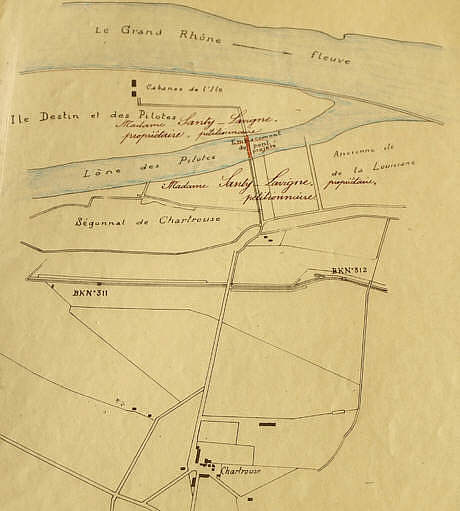 Le Grand Rhône
fleuve
Cabanes de l'Ile
Ile Destin et des Pilotes
Madame Santy-Lavigne.
propriétaire. pétitionnaire
Emplacement
du pont
projeté
Lône des Pilotes
Madame Santy-Lavigne.
pétitionnaire
Ancienne de
de la Louviere
propriétaire.
Ségonnal de Chartrouse
BKN°312
BKN°311
Chartrouse